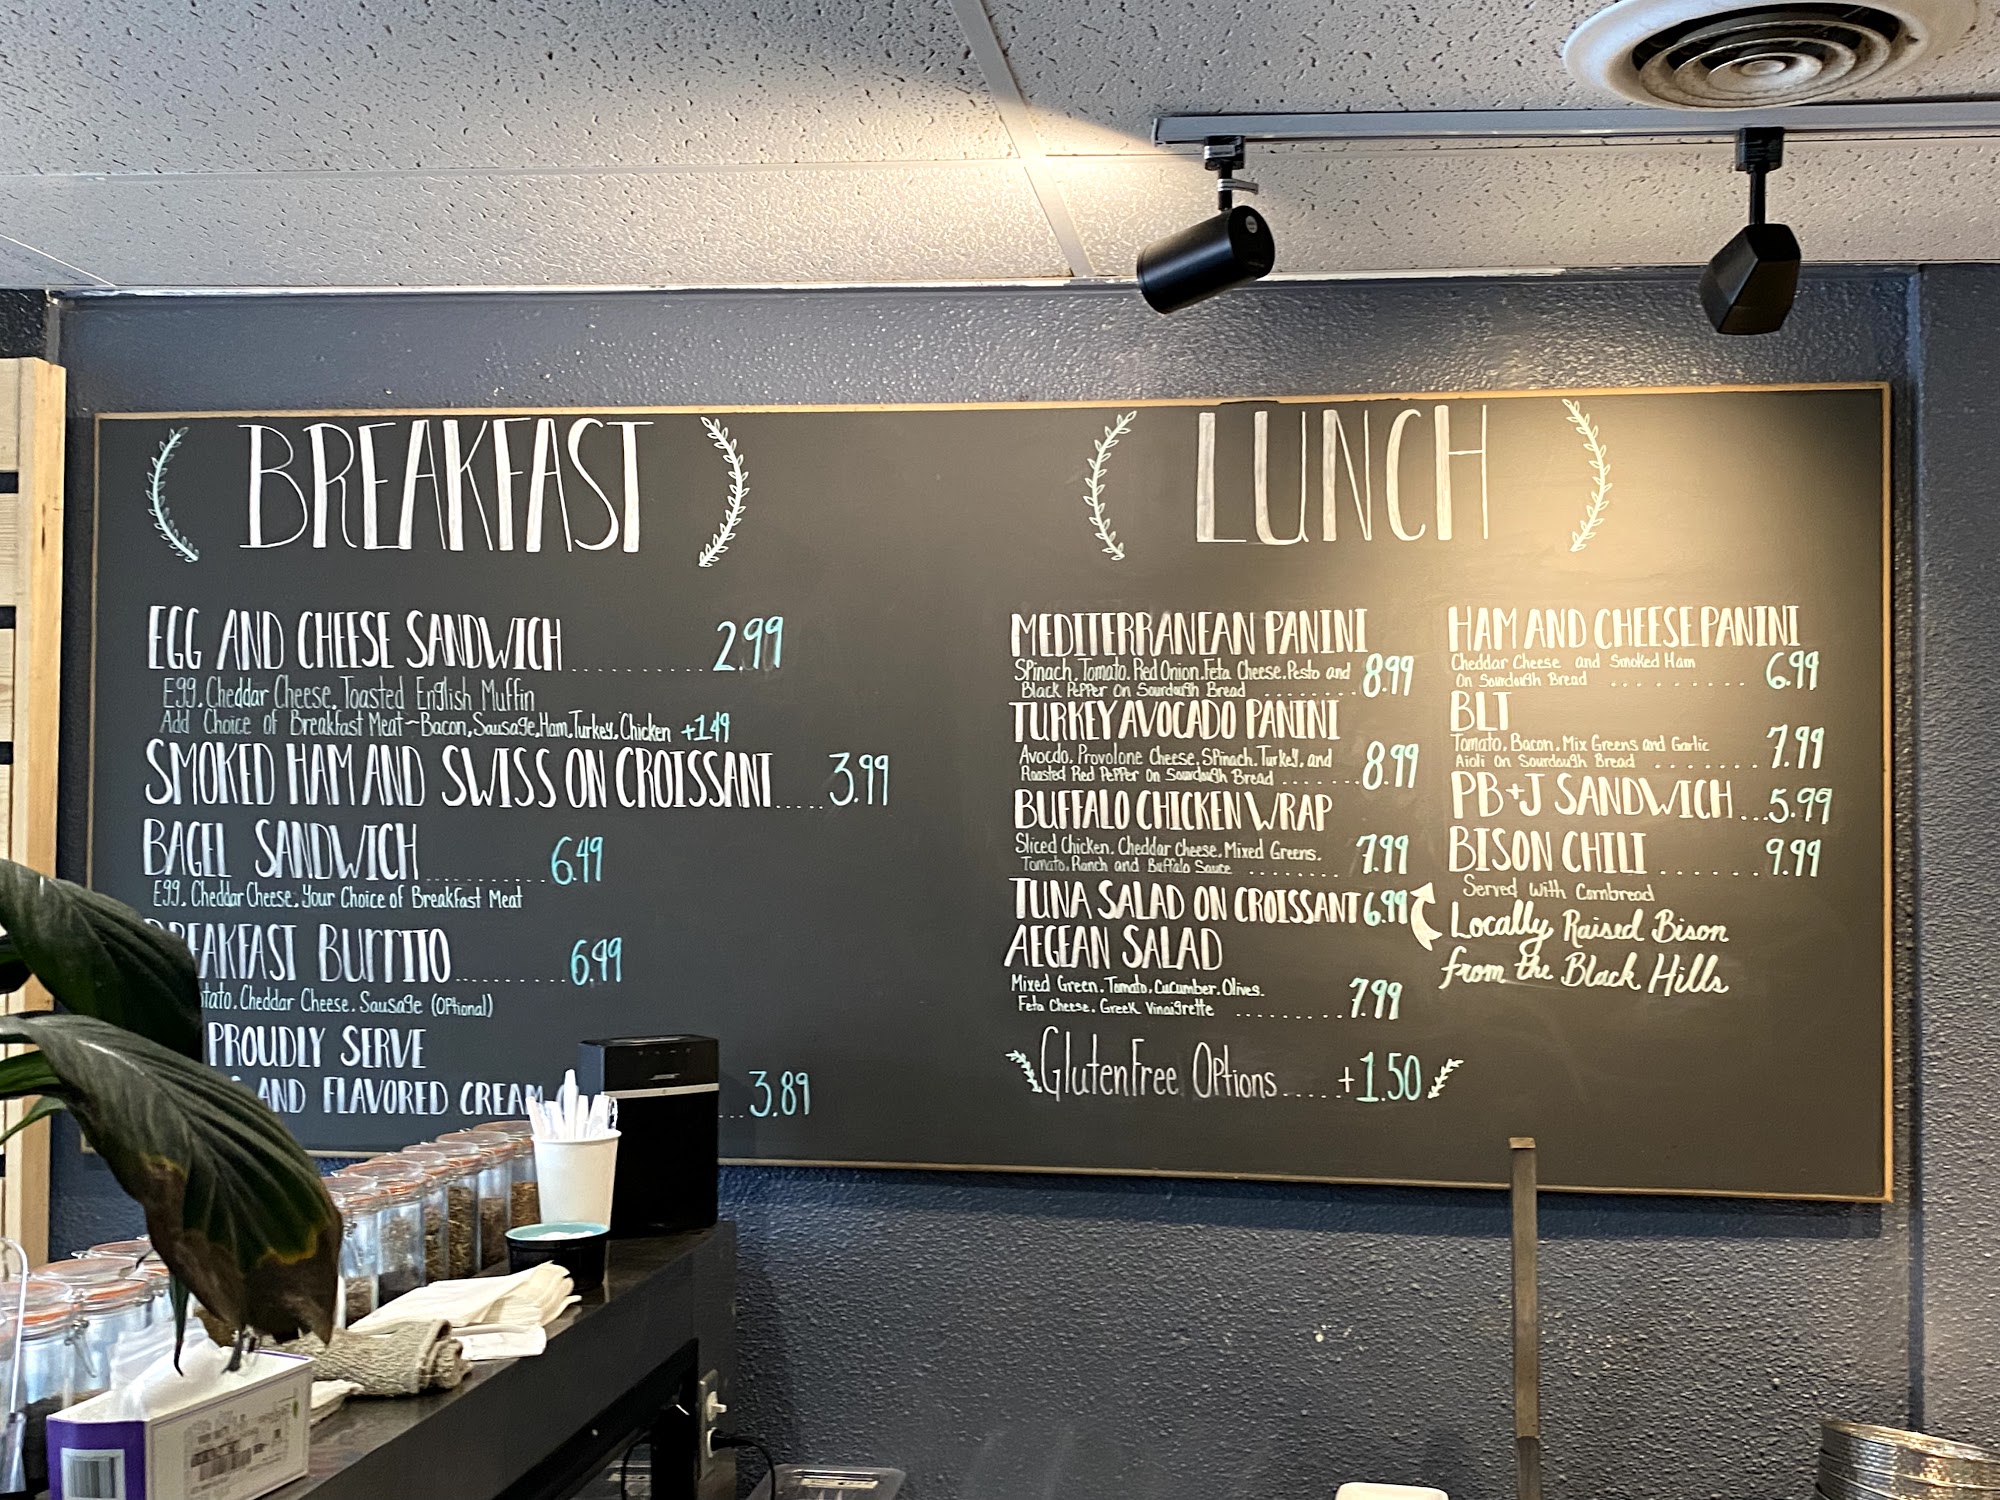 BREAKFAST
EGG AND CHEESE SANDWICH.........2.99
Egg, Cheddar Cheese, Toasted English Muffin
Add Choice of Breakfast Meat~Bacon, Sausage, Ham, Turkey, Chicken +1.49
SMOKED HAM AND SWISS ON CROISSANT.....3.99
BAGEL SANDWICH..........6.49
Egg, Cheddar Cheese, Your Choice of Breakfast Meat
BREAKFAST BURRITO.........6.99
Cheddar Cheese, Sausage (Optional)
PROUDLY SERVE
AND FLAVORED CREAM ...3.89
LUNCH
MEDITERRANEAN PANINI
Spinach, Tomato, Red Onion, Feta Cheese, Pesto and
Black Pepper On Sourdough Bread .........8.99
TURKEY AVOCADO PANINI
Avocdo, Provolone Cheese, Spinach, Turkey, and
Roasted Red Pepper On Sourdough Bread ........8.99
BUFFALO CHICKEN WRAP
Sliced Chicken, Cheddar Cheese, Mixed Greens,
Tomato, Ranch and Buffalo Sauce ........7.99
TUNA SALAD ON CROISSANT 6.99
AEGEAN SALAD
Mixed Green, Tomato, Cucumber, Olives,
Feta Cheese, Greek Vinaigrette .........7.99
GlutenFree Options.....+1.50
HAM AND CHEESE PANINI
Cheddar Cheese and Smoked Ham
On Sourdough Bread .........6.99
BLT
Tomato, Bacon, Mix Greens and Garlic
Aioli On Sourdough Bread .........7.99
PB+J SANDWICH...5.99
BISON CHILI .......9.99
Served With Cornbread
Locally Raised Bison
from the Black Hills
BOSE